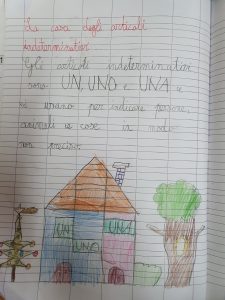 La casa degli articoli
indeterminativi
Gli articoli indeterminativi
sono UN, UNO e UNA e
si usano per indicare persone,
animali e cose in modo
non preciso.
UN
UNA
UNO